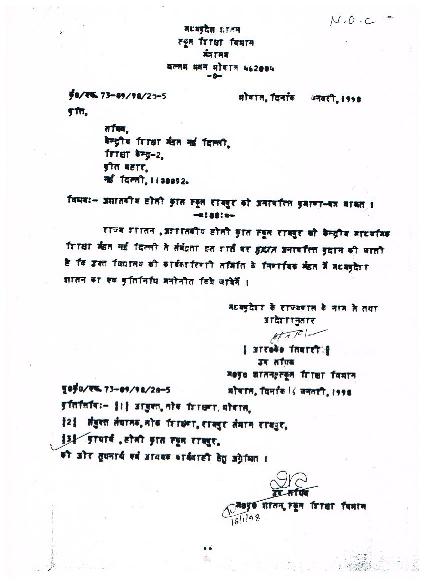 N.O.C -
मध्यप्रदेश शासन
स्कूल शिक्षा विभाग
मंत्रालय
वल्लभ भवन भोपाल 462004
-0-
73-09/98/20-5 भोपाल, दिनांक जनवरी, 1998
प्रति,
सचिव,
केन्द्रीय शिक्षा मंडल नई दिल्ली,
शिक्षा केन्द्र-2,
प्रीत विहार,
नई दिल्ली, 110092.
विषय:- अशासकीय होली क्रास स्कूल रायपुर को अनापत्ति प्रमाण-पत्र बाबत ।
राज्य शासन, अशासकीय होली क्रास स्कूल रायपुर को केन्द्रीय माध्यमिक
शिक्षा मंडल नई दिल्ली से संबद्धता इस शर्त पर अनापत्ति प्रदान की जाती
है कि उक्त विद्यालय की कार्यकारिणी समिति के निर्वाचक मंडल में मध्यप्रदेश
शासन का एक प्रतिनिधि मनोनीत किये जायेंगे ।
मध्यप्रदेश के राज्यपाल के नाम से तथा
आदेशानुसार
तिवारी
उप सचिव
म0प्र0 शासन, स्कूल शिक्षा विभाग
73-09/98/20-5 भोपाल, दिनांक 16 जनवरी, 1998
प्रतिलिपि:- [1] आयुक्त, लोक शिक्षण, भोपाल,
[2] संयुक्त संचालक, लोक शिक्षण, रायपुर संभाग रायपुर,
[3] प्राचार्य, होली क्रास स्कूल रायपुर,
की ओर सूचनार्थ एवं आवश्यक कार्यवाही हेतु अग्रेषित ।
उप सचिव
म0प्र0 शासन, स्कूल शिक्षा विभाग
16/1/98